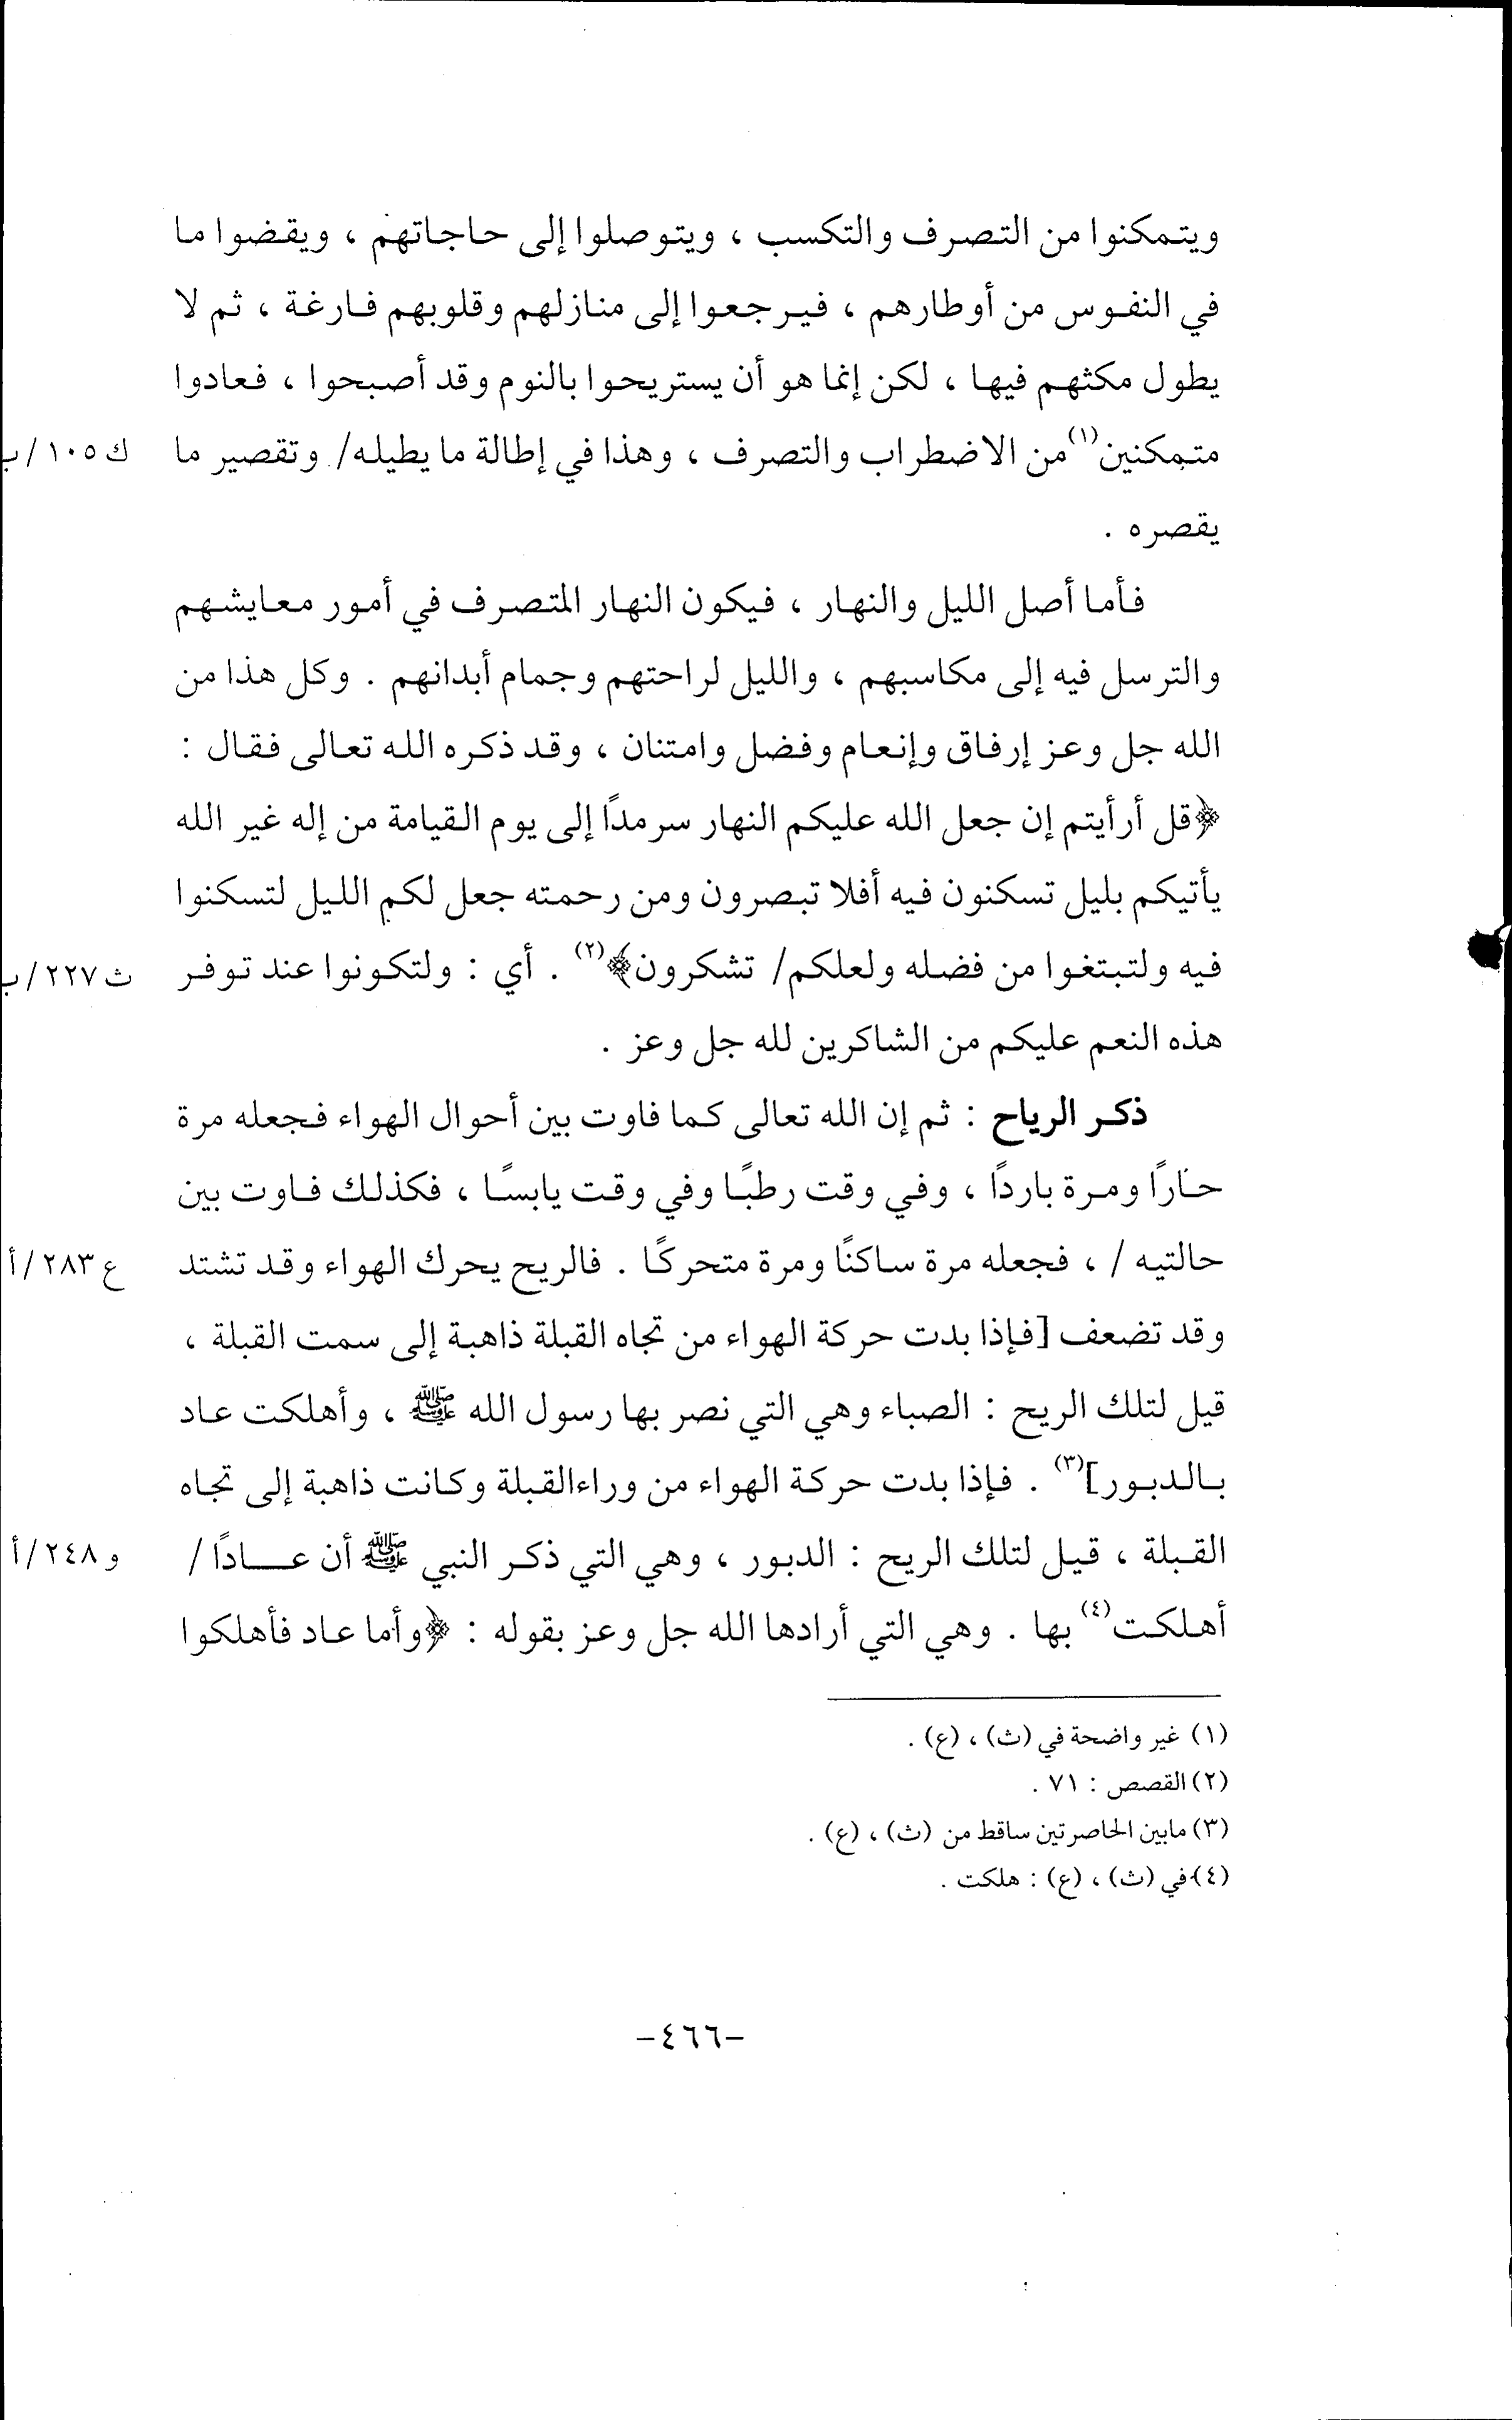 ويتمكنوا من التصرف والتكسب ، ويتوصلوا إلى حاجاتهم ، ويقضوا ما
في النفوس من أوطارهم ، فيرجعوا إلى منازلهم وقلوبهم فارغة ، ثم لا
يطول مكثهم فيها ، لكن إنما هو أن يستريحوا بالنوم وقد أصبحوا ، فعادوا
متمكنين(١) من الاضطراب والتصرف ، وهذا في إطالة ما يطيله/ وتقصير ما ك ١٠٥ /ب
يقصره .
فأما أصل الليل والنهار ، فيكون النهار المتصرف في أمور معايشهم
والترسل فيه إلى مكاسبهم ، والليل لراحتهم وجمام أبدانهم . وكل هذا من
الله جل وعز إرفاق وإنعام وفضل وامتنان ، وقد ذكره الله تعالى فقال :
﴿قل أرأيتم إن جعل الله عليكم النهار سرمدًا إلى يوم القيامة من إله غير الله
يأتيكم بليل تسكنون فيه أفلا تبصرون ومن رحمته جعل لكم الليل لتسكنوا
فيه ولتبتغوا من فضله ولعلكم/ تشكرون﴾(٢) . أي : ولتكونوا عند توفر ث ٢٢٧ /ب
هذه النعم عليكم من الشاكرين لله جل وعز .
ذكر الرياح : ثم إن الله تعالى كما فاوت بين أحوال الهواء فجعله مرة
حارًا ومرة باردًا ، وفي وقت رطبًا وفي وقت يابسًا ، فكذلك فاوت بين
حالتيه / ، فجعله مرة ساكنًا ومرة متحركًا . فالريح يحرك الهواء وقد تشتد ع ٢٨٣ /أ
وقد تضعف [فإذا بدت حركة الهواء من تجاه القبلة ذاهبة إلى سمت القبلة ،
قيل لتلك الريح : الصباء وهي التي نصر بها رسول الله ﷺ ، وأهلكت عاد
بالدبور](٣) . فإذا بدت حركة الهواء من وراءالقبلة وكانت ذاهبة إلى تجاه
القبلة ، قيل لتلك الريح : الدبور ، وهي التي ذكر النبي ﷺ أن عــادًا / و ٢٤٨ /أ
أهلكت(٤) بها . وهي التي أرادها الله جل وعز بقوله : ﴿وأما عاد فأهلكوا
(١) غير واضحة في (ث) ، (ع) .
(٢) القصص : ٧١ .
(٣) مابين الحاصرتين ساقط من (ث) ، (ع) .
(٤) في (ث) ، (ع) : هلكت .
-٤٦٦-